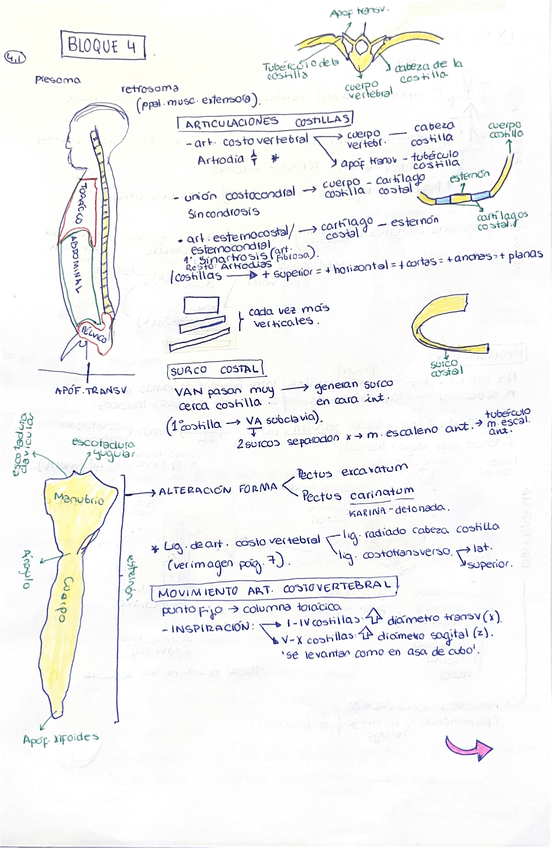 4.1
BLOQUE 4
Apóf transv.
Tubérculo de la
costilla
cabeza de la
costilla
cuerpo
vertebral
presoma
retrosoma
(ppal. musc. extensora).
TORÁCICO
ABDOMINAL
PÉLVICO
APÓF. TRANSV
ARTICULACIONES COSTILLAS
- art. costo vertebral → cuerpo vertebr. — cabeza costilla
Artrodia *
apóf transv - tubérculo costilla
- unión costocondral → cuerpo costilla - cartílago costal
Sincondrosis
- art. esternocostal/ → cartílago costal - esternón
esternocondral
1ª sinartrosis (art. fibrosa).
Resto Artrodias
cuerpo
costilla
esternón
cartílagos
costal.
/costillas → + superior = + horizontal = + cortas = + anchas = + planas
cada vez más
verticales.
surco
costal
SURCO COSTAL
VAN pasan muy → generan surco
cerca costilla en cara int.
(1ª costilla → VA subclavia).
2 surcos separados x → m. escaleno ant. → tubérculo m. escal. ant.
escotadura
yugular
Manubrio
Ángulo
Cuerpo
esternón
Apóf xifoides
→ ALTERACIÓN FORMA
Pectus excavatum
Pectus carinatum
KARINA - detonada.
* Lig. de art. costo vertebral
lig. radiado cabeza costilla
lig. costotransverso → lat.
superior.
(ver imagen pág. 7).
MOVIMIENTO ART. COSTOVERTEBRAL
punto fijo → columna torácica
- INSPIRACIÓN: → I-IV costillas ⇧ diámetro transv (x).
V-X costillas ⇧ diámetro sagital (z).
'se levantar como en asa de cubo'.